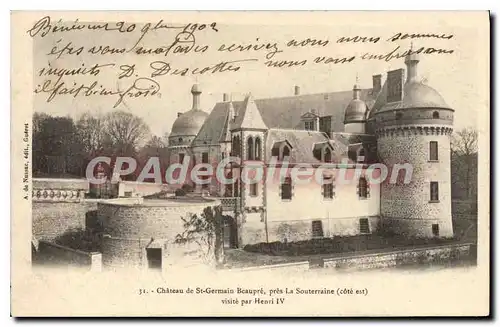 Bénévent 20 9bre 1902
êtes vous malade écrivez nous nous sommes
inquiets D. Descottes nous vous embrassons
il fait bien froid
A. de Nussac, édit., Guéret
CPARAMA.COM
31. - Château de St-Germain Beaupré, près La Souterraine (côté est)
visité par Henri IV